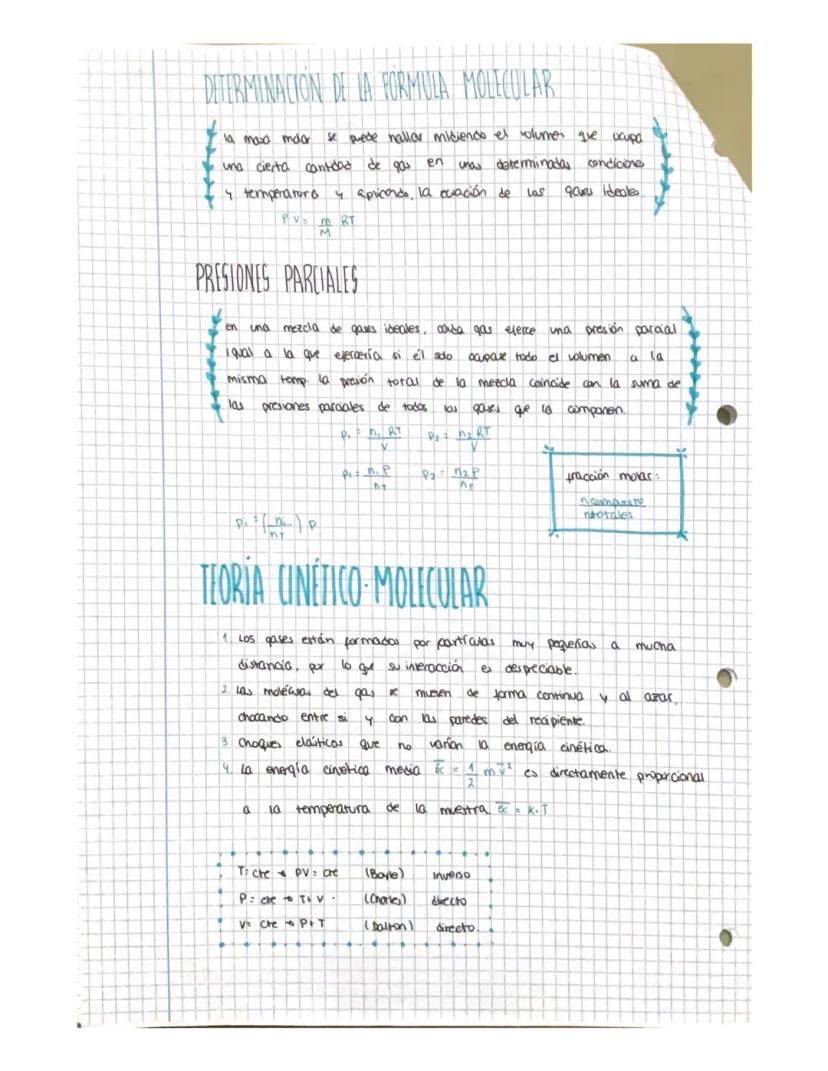 DETERMINACIÓN DE LA FÓRMULA MOLECULAR
la masa molar se puede hallar midiendo el volumen que ocupa
una cierta cantidad de gas en unas determinadas condiciones
y temperatura y aplicando, la ecuación de los gases ideales.
P·V = m/M RT
PRESIONES PARCIALES
en una mezcla de gases ideales, cada gas ejerce una presión parcial
igual a la que ejercería si él solo ocupase todo el volumen a la
misma temp. la presión total de la mezcla coincide con la suma de
las presiones parciales de todos los gases que la componen.
P₁ = n₁ RT/V P₂ = n₂ RT/V
P₁ = n₁ P/nT P₂ = n₂ P/nT
fracción molar:
ncompuesto
ntotales
Pi = (ni/nT) P
TEORÍA CINÉTICO-MOLECULAR
1 Los gases están formados por partículas muy pequeñas a mucha
distancia, por lo que su interacción es despreciable.
2. Las moléculas del gas se mueven de forma continua y al azar,
chocando entre si y con las paredes del recipiente.
3 Choques elásticos que no varían la energía cinética.
4. La energía cinética media Ec = 1/2 mv² es directamente proporcional
a la temperatura de la muestra Ec = K·T
T= cte → PV= cte (Boyle) inverso
P= cte → T+V (Charles) directo
V= cte → P+T (Dalton) directo.